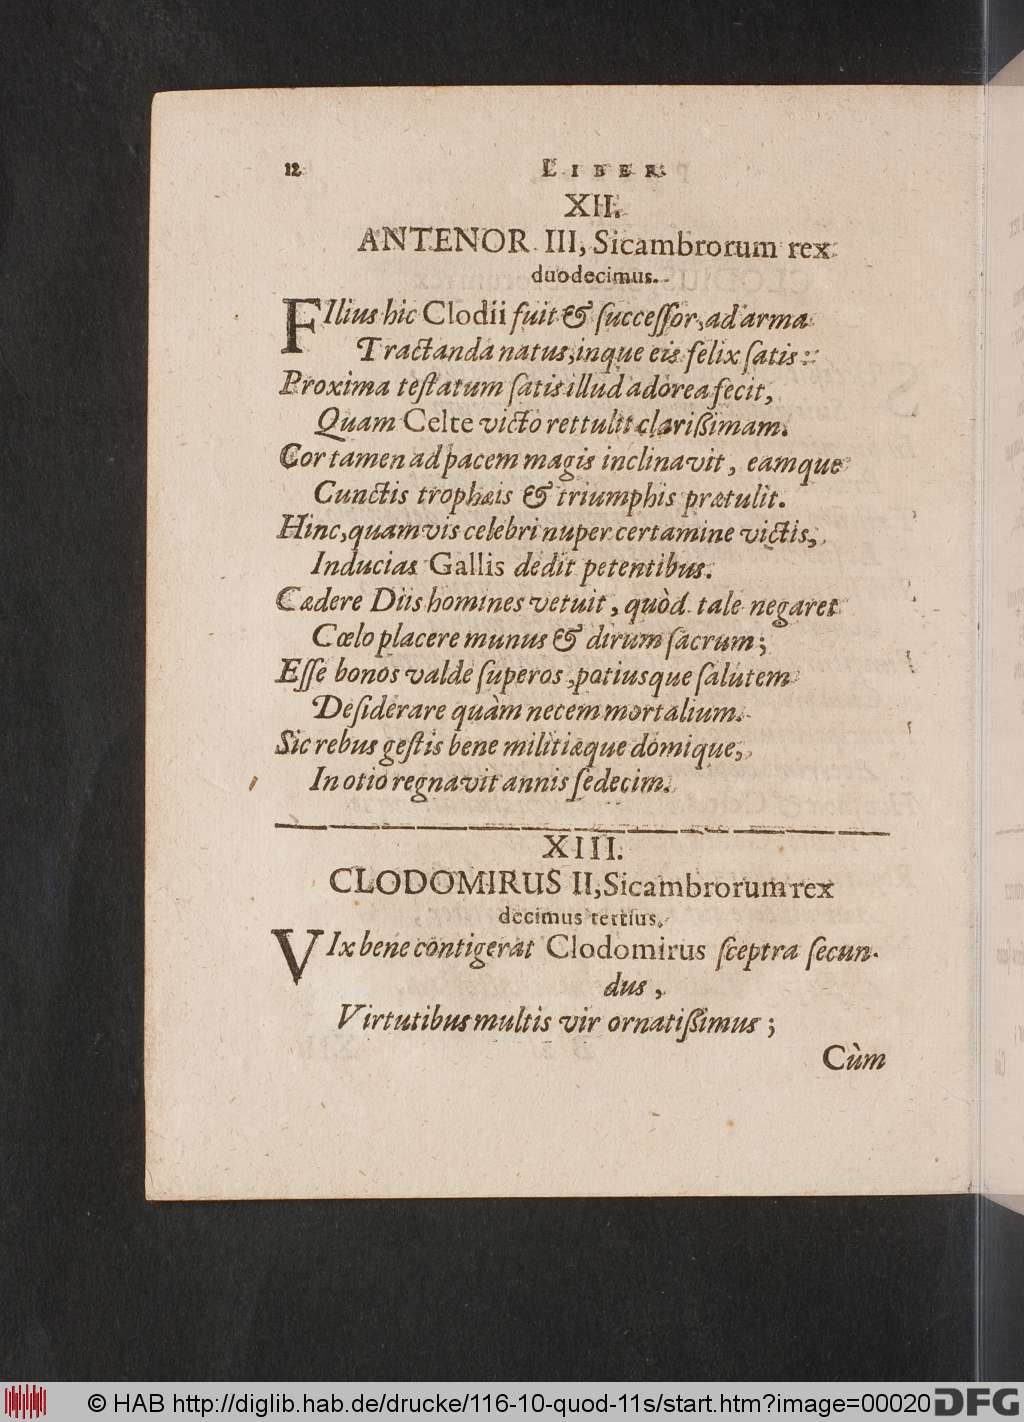 12 LIBER.
XII.
ANTENOR III, Sicambrorum rex
duodecimus.
FIlius hic Clodii fuit & ſucceſſor, ad arma
Tractanda natus, inque eis felix ſatis:
Proxima teſtatum ſatis illud adorea fecit,
Quam Celte victo rettulit clarißimam.
Cor tamen ad pacem magis inclinavit, eamque
Cunctis trophæis & triumphis prætulit.
Hinc, quamvis celebri nuper certamine victis,
Inducias Gallis dedit petentibus.
Cædere Diis homines vetuit, quòd tale negaret
Cœlo placere munus & dirum ſacrum;
Eſſe bonos valde ſuperos, potiusque ſalutem
Deſiderare quàm necem mortalium.
Sic rebus geſtis bene militiæque domique,
In otio regnavit annis ſedecim.
XIII.
CLODOMIRUS II, Sicambrorum rex
decimus tertius.
VIx bene contigerat Clodomirus ſceptra ſecun-
dus,
Virtutibus multis vir ornatißimus;
Cùm
© HAB http://diglib.hab.de/drucke/116-10-quod-11s/start.htm?image=00020 DFG